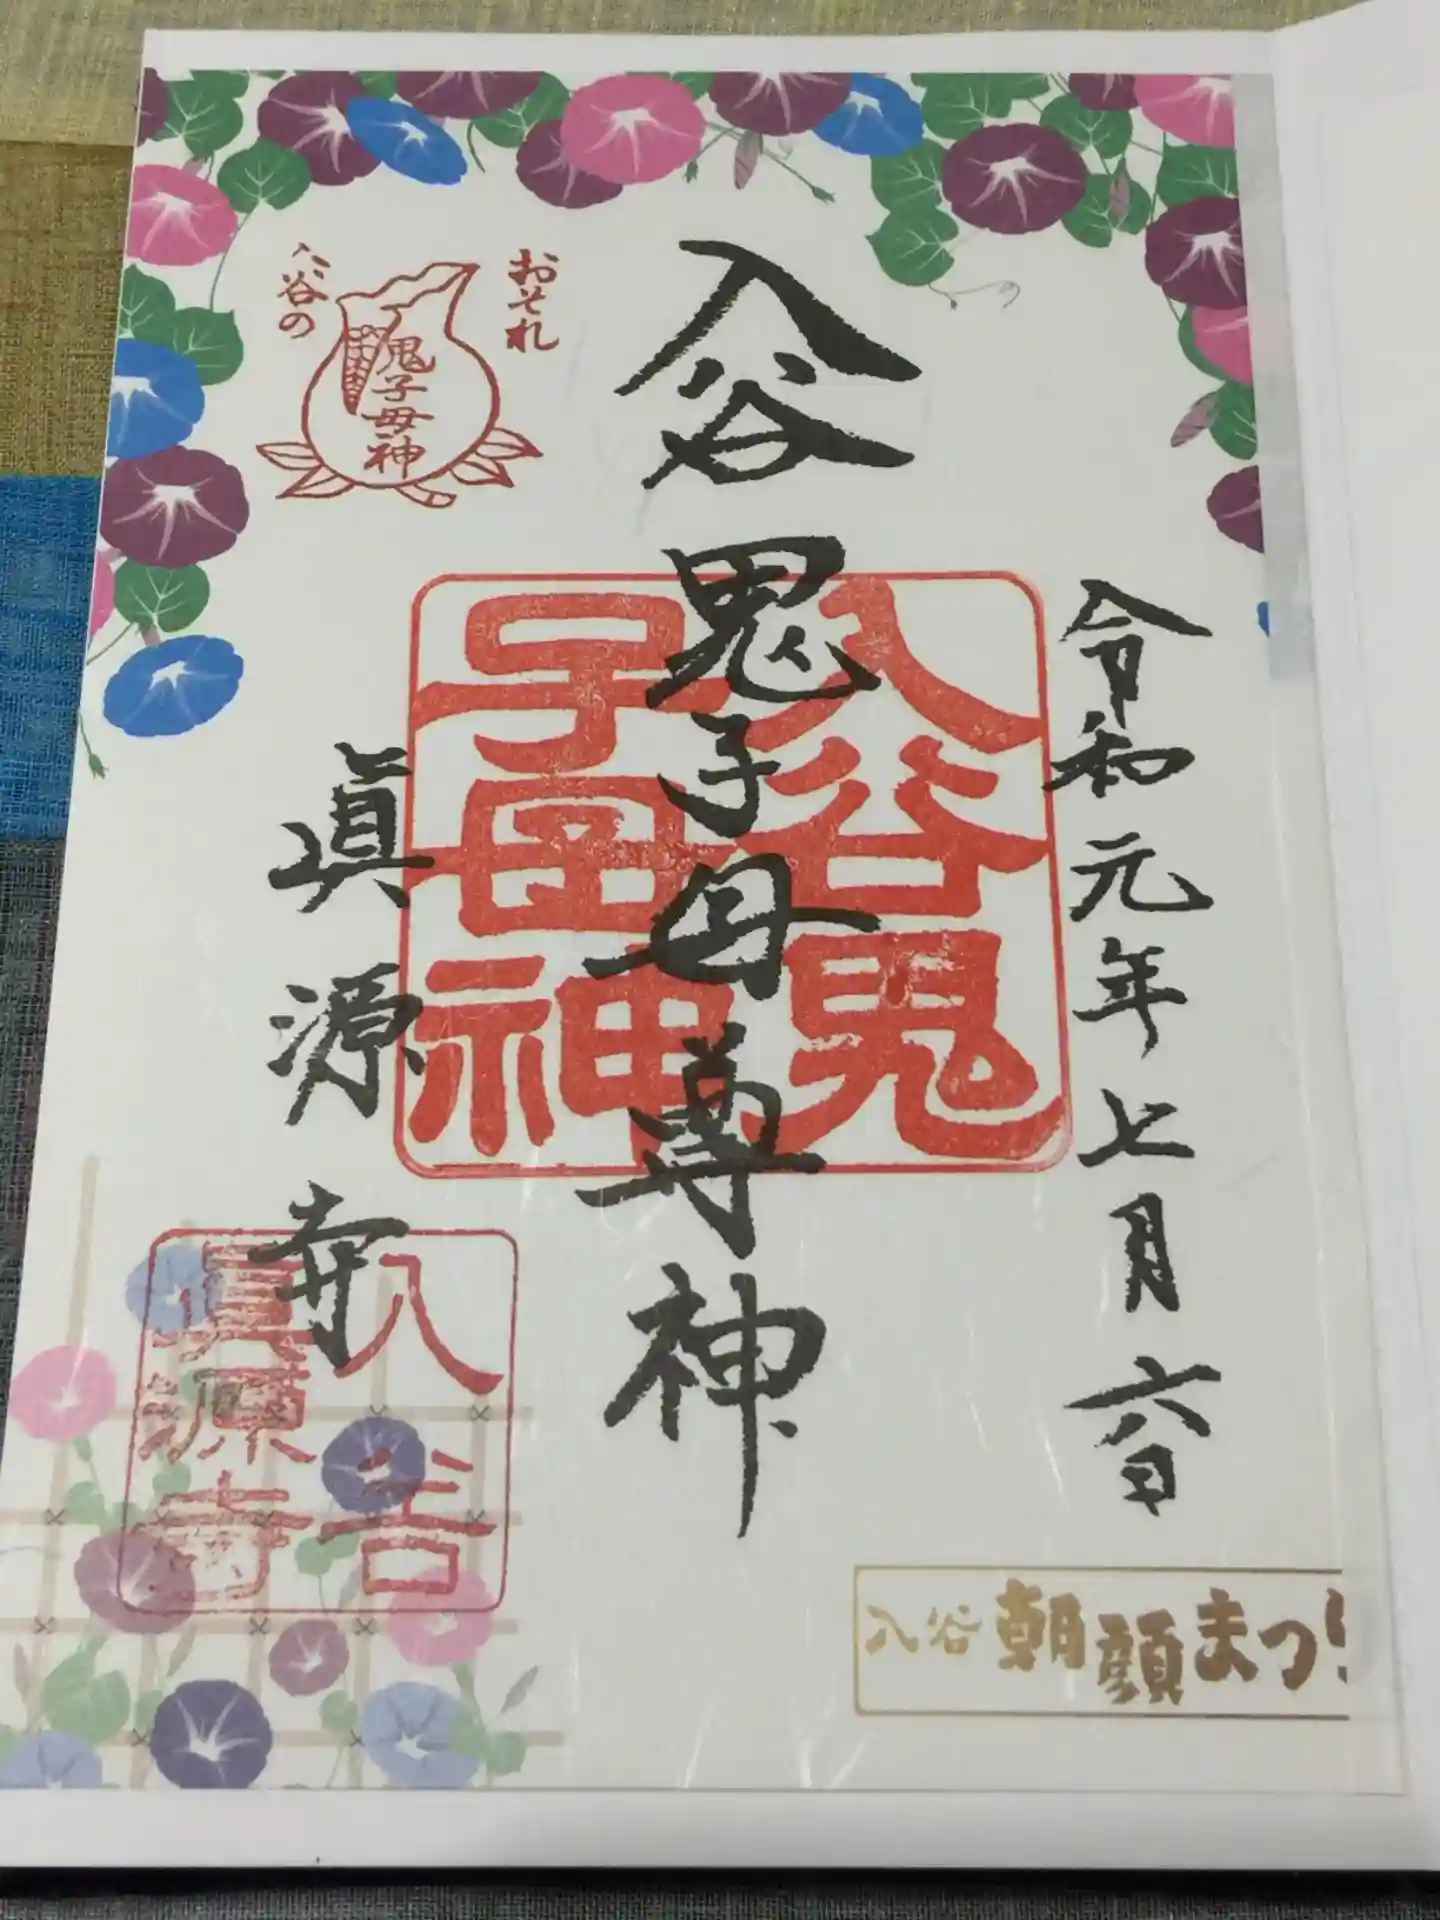 令和元年七月六日
入谷鬼子母尊神
入谷鬼
子母神
おそれ
入谷の
鬼子母神
眞源寺
入谷
眞源寺
入谷朝顔まつり